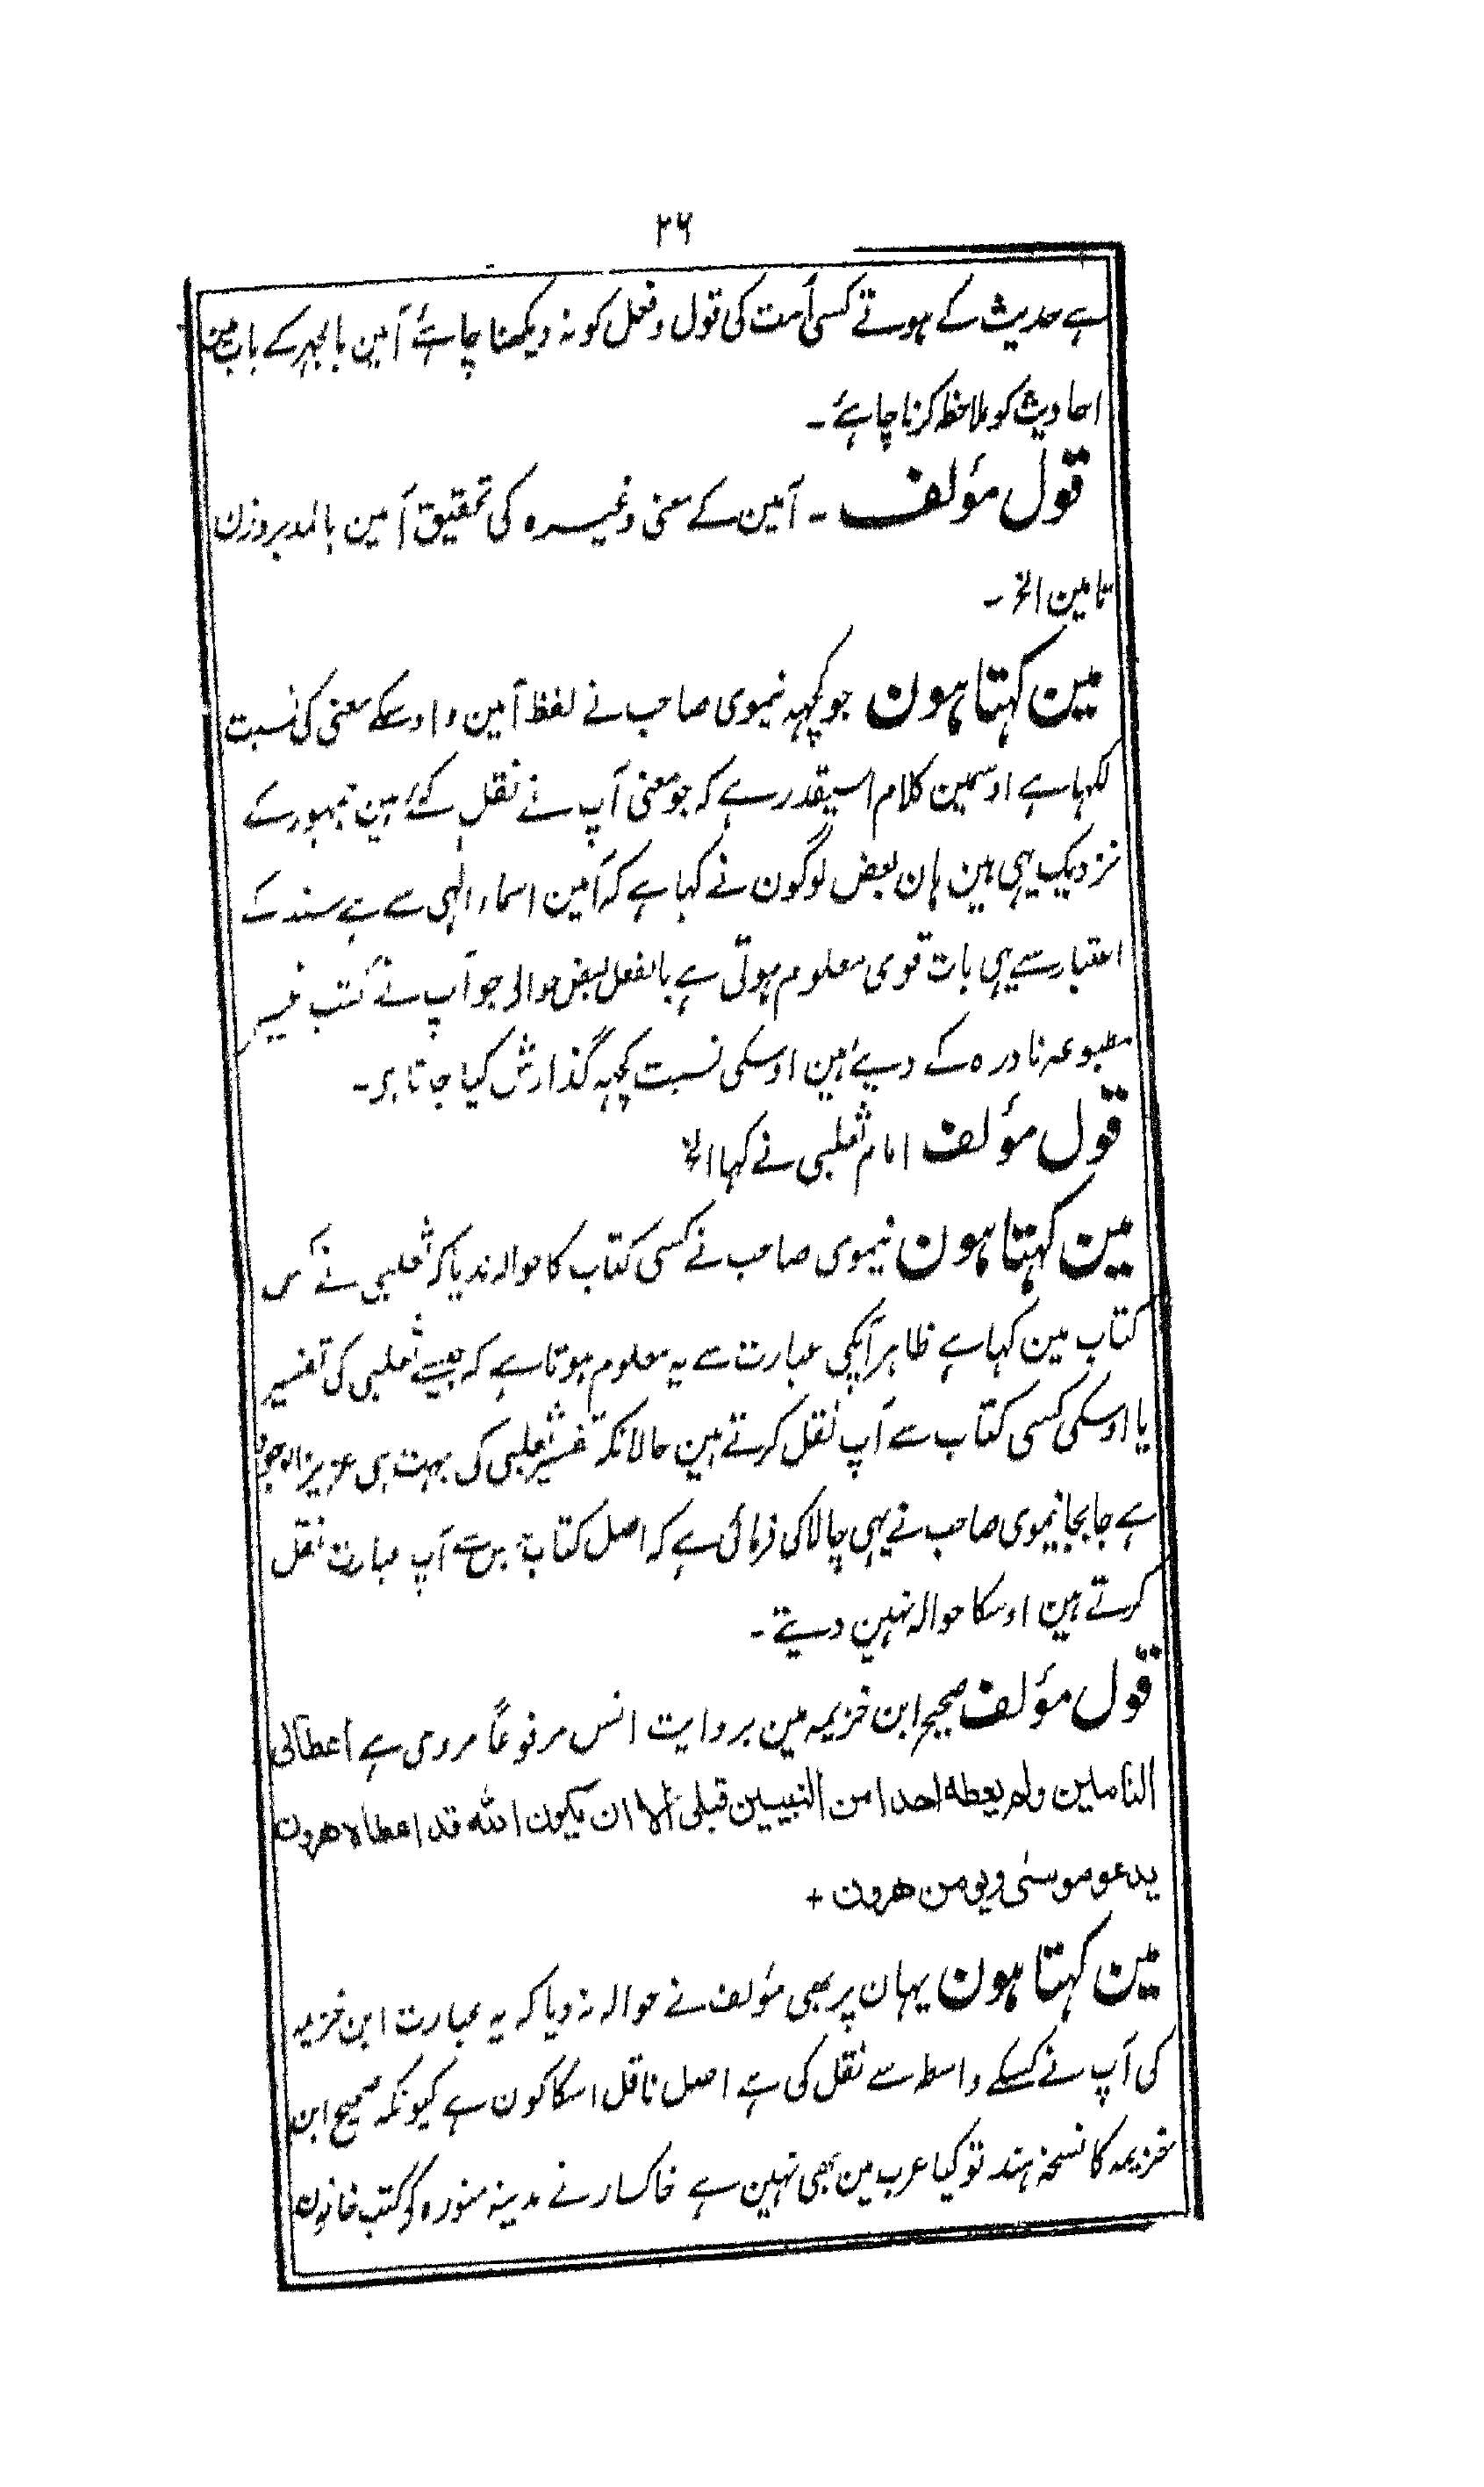 ۲۶
ہے حدیث کے ہوتے کسی اُمت کی قول و فعل کو نہ دیکھنا چاہئے آمین بالجہر کے باب مین
احادیث کو ملاحظہ کرنا چاہئے ۔
قول مؤلف ۔ آمین کے معنی وغیرہ کی تحقیق آمین بالمد بروزن
تامین الخ ۔
مین کہتا ہون جو کچہہ نیموی صاحب نے لفظ آمین و اوسکے معنی کی نسبت
لکہا ہے اوسمین کلام اسیقدر ہے کہ جو معنی آپ نے نقل کئے ہین جمہور کے
نزدیک یہی ہین ہان بعض لوگون نے کہا ہے کہ آمین اسماء الٰہی سے ہے سند کے
اعتبار سے یہی بات قوی معلوم ہوتی ہے بالفعل بعض حوالی جو آپ نے کتب غیر
مطبوعہ نادرہ کے دیے ہین اوسکی نسبت کچہہ گذارش کیا جاتا ہی ۔
قول مؤلف امام ثعلبی نے کہا الخ
مین کہتا ہون نیموی صاحب نے کسی کتاب کا حوالہ ندیا کہ ثعلبی نے کس
کتاب مین کہا ہے ظاہراً آپکی عبارت سے یہ معلوم ہوتا ہے کہ جیسے ثعلبی کی تفسیر
یا اوسکی کسی کتاب سے آپ نقل کرتے ہین حالانکہ تفسیر ثعلبی کی بہت ہی عزیز الوجود
ہے جابجا نیموی صاحب نے یہی چالاکی فرمائی ہے کہ اصل کتاب جس سے آپ عبارت نقل
کرتے ہین اوسکا حوالہ نہین دیتے ۔
قول مؤلف صحیح ابن خزیمہ مین بروایت انس مرفوعاً مروی ہے اعطانی
التامین ولم یعطہ احدا من النبیین قبلی الا ان یکون اللہ قد اعطاہ ھرون
یدعو موسیٰ ویومن ھرون +
مین کہتا ہون یہان پر بھی مؤلف نے حوالہ نہ دیا کہ یہ عبارت ابن خزیمہ
کی آپ نے کسکے واسطہ سے نقل کی ہے اصل ناقل اسکا کون ہے کیونکہ صحیح ابن
خزیمہ کا نسخہ ہند تو کیا عرب مین بھی نہین ہے خاکسار نے مدینہ منورہ کے کتب خانون